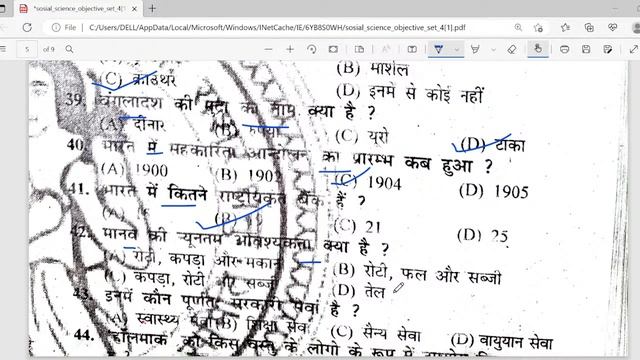 *sosial_science_objective_set_4[1].p
File | C:/Users/DELL/AppData/Local/Microsoft/Windows/INetCache/IE/6YB8S0WH/sosial_science_objective_set_4[1].pdf
5 of 9
(C) क्राउथर
(B) मार्शल
(D) इनमें से कोई नहीं
39. बंगलादेश की मुद्रा का नाम क्या है ?
(A) दीनार (B) रुपया (C) यूरो (D) टाका
40. भारत में सहकारिता आन्दोलन का प्रारम्भ कब हुआ ?
(A) 1900 (B) 1902 (C) 1904 (D) 1905
41. भारत में कितने राष्ट्रीयकृत बैंक हैं ?
(B) (C) 21 (D) 25
42. मानव की न्यूनतम आवश्यकता क्या है ?
(A) रोटी, कपड़ा और मकान (B) रोटी, फल और सब्जी
कपड़ा, रोटी और सब्जी (D) तेल
43. इनमें कौन पूर्णतः सरकारी सेवा है ?
(A) स्वास्थ्य सेवा (B) शिक्षा सेवा (C) सैन्य सेवा (D) वायुयान सेवा
44. हॉलमार्क को किस वस्तु के लोगो के रूप में